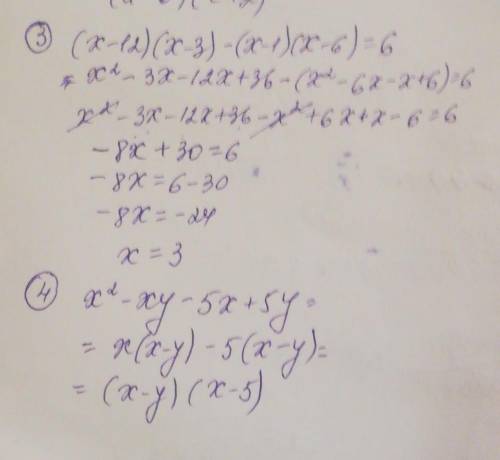 ③ (x-12)(x-3)-(x-1)(x-6)=6
x²-3x-12x+36-(x²-6x-x+6)=6
x²-3x-12x+36-x²+6x+x-6=6
-8x+30=6
-8x=6-30
-8x=-24
x=3
④ x²-xy-5x+5y=
=x(x-y)-5(x-y)=
=(x-y)(x-5)